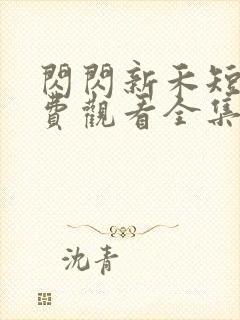 閃閃新禾短
費觀看全集
沈青